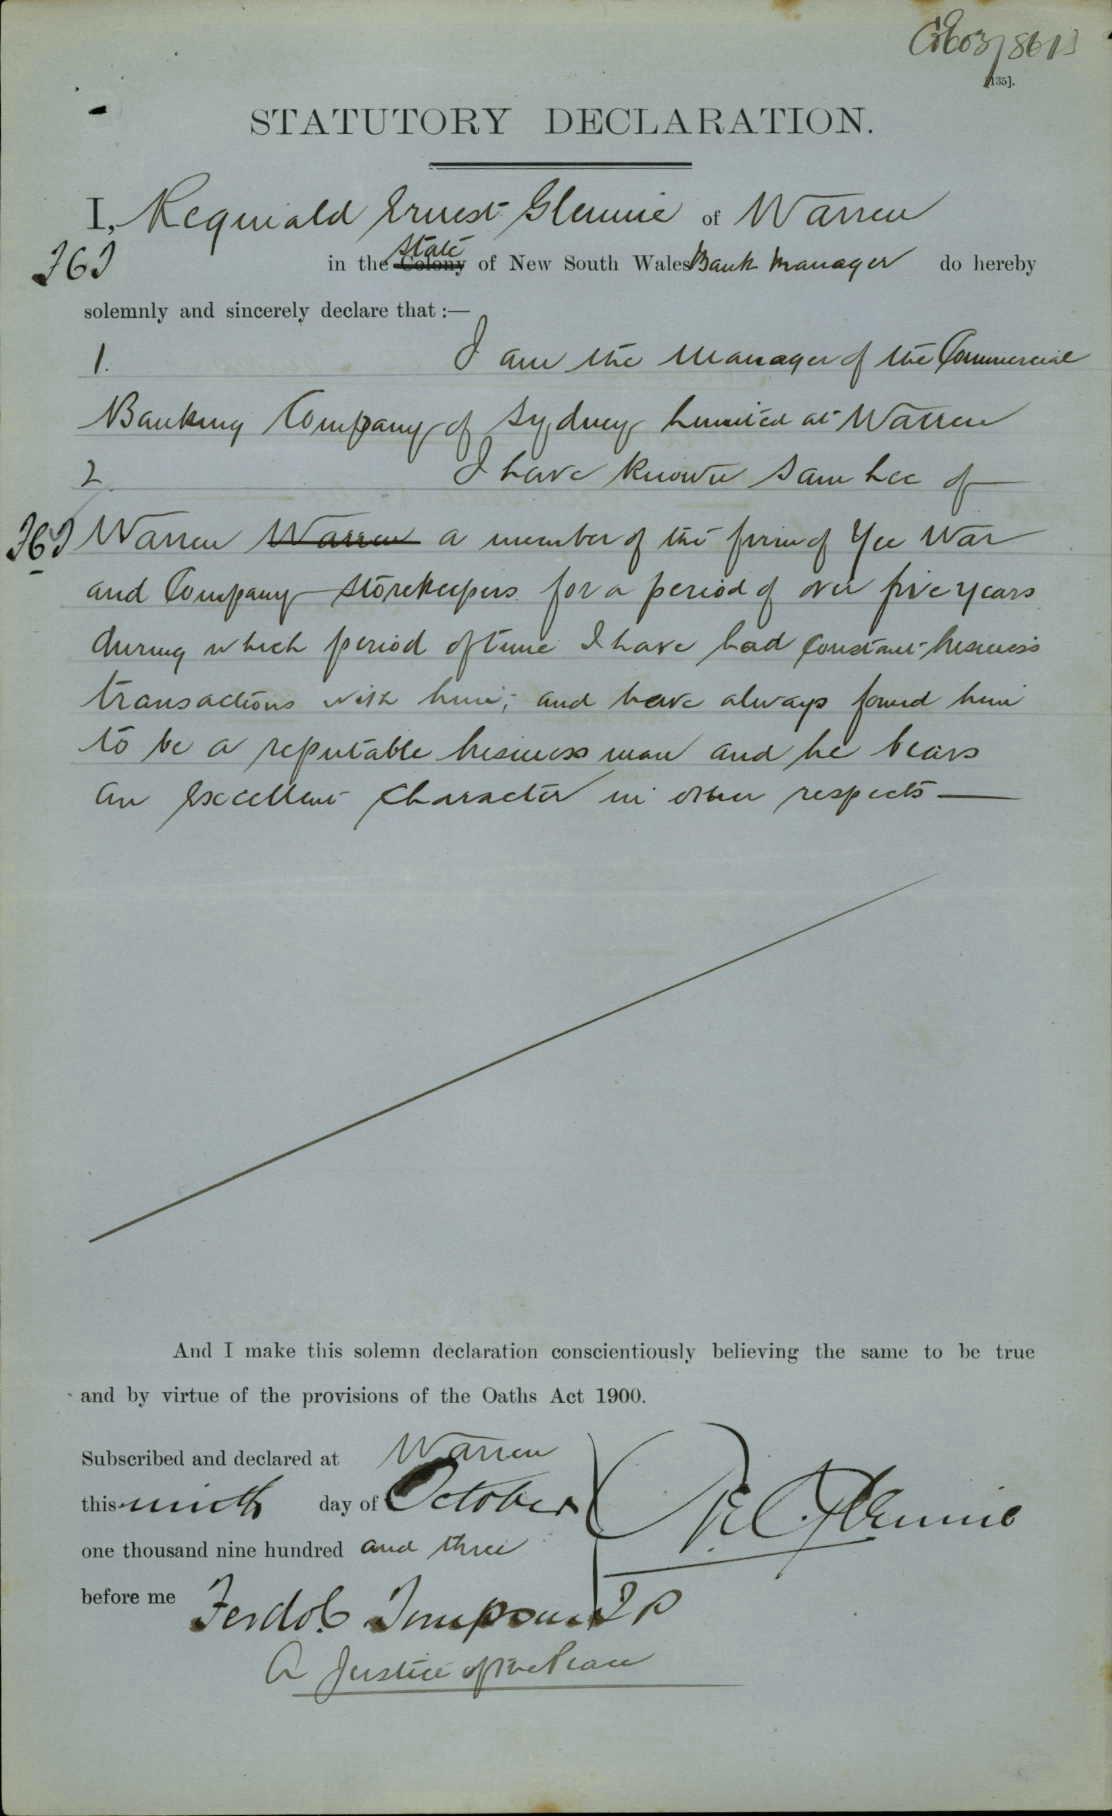 C03/8613
[135].
STATUTORY DECLARATION.
I, Reginald Ernest Glennie of Warren
in the State Colony of New South Wales Bank Manager do hereby
solemnly and sincerely declare that :—
1. I am the Manager of the Commercial
Banking Company of Sydney Limited at Warren
2. I have known Sam Lee of
Warren Warren a member of the firm of Yee War
and Company Storekeepers for a period of over five years
during which period of time I have had constant business
transactions with him; and have always found him
to be a reputable business man and he bears
an excellent character in other respects —
And I make this solemn declaration conscientiously believing the same to be true
and by virtue of the provisions of the Oaths Act 1900.
Subscribed and declared at Warren
this ninth day of October
one thousand nine hundred and three
R. E. Glennie
before me Ferd. C Tompson J P
A Justice of the Peace